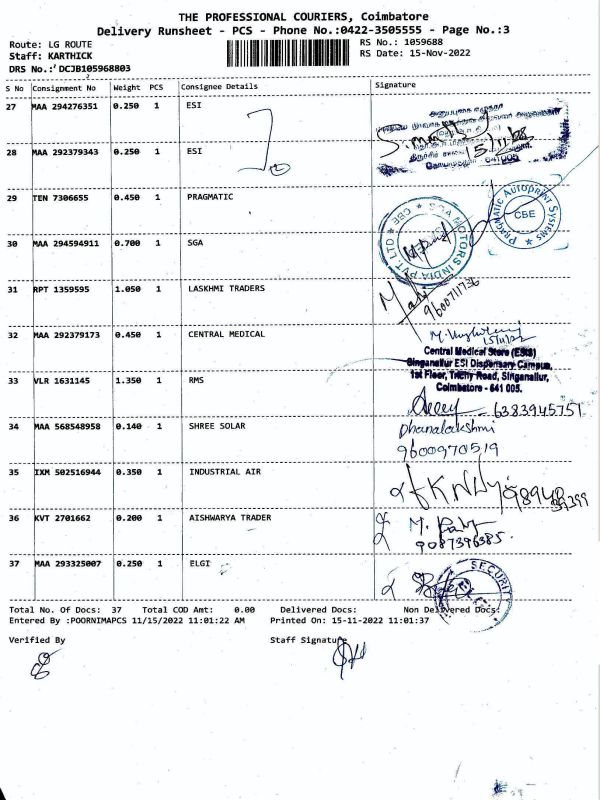 THE PROFESSIONAL COURIERS, Coimbatore
Delivery Runsheet - PCS - Phone No.:0422-3505555 - Page No.:3
Route: LG ROUTE
RS No.: 1059688
Staff: KARTHICK
RS Date: 15-Nov-2022
DRS No.: DCJB105968803
S No Consignment No Weight PCS Consignee Details Signature
27 MAA 294276351 0.250 1 ESI
28 MAA 292379343 0.250 1 ESI
15/11/22
641005
29 TEN 7306655 0.450 1 PRAGMATIC
PRAGMATIC AUTOPRINT SYSTEMS
CBE
30 MAA 294594911 0.700 1 SGA
SGA MOTORS INDIA PVT LTD * CBE *
31 RPT 1359595 1.050 1 LASKHMI TRADERS
9600711736
32 MAA 292379173 0.450 1 CENTRAL MEDICAL
15/11/22
Central Medical Store (ESIS)
Singanallur ESI Dispensary Campus,
1st Floor, Trichy Road, Singanallur,
Coimbatore - 641 005.
33 VLR 1631145 1.350 1 RMS
6383945751
34 MAA 568548958 0.140 1 SHREE SOLAR
Dhanalakshmi
9600970519
35 IXM 502516944 0.350 1 INDUSTRIAL AIR
36 KVT 2701662 0.200 1 AISHWARYA TRADER
9087396385
37 MAA 293325007 0.250 1 ELGI
SECURITY
Total No. Of Docs: 37 Total COD Amt: 0.00 Delivered Docs: Non Delivered Docs:
Entered By :POORNIMAPCS 11/15/2022 11:01:22 AM Printed On: 15-11-2022 11:01:37
Verified By Staff Signature